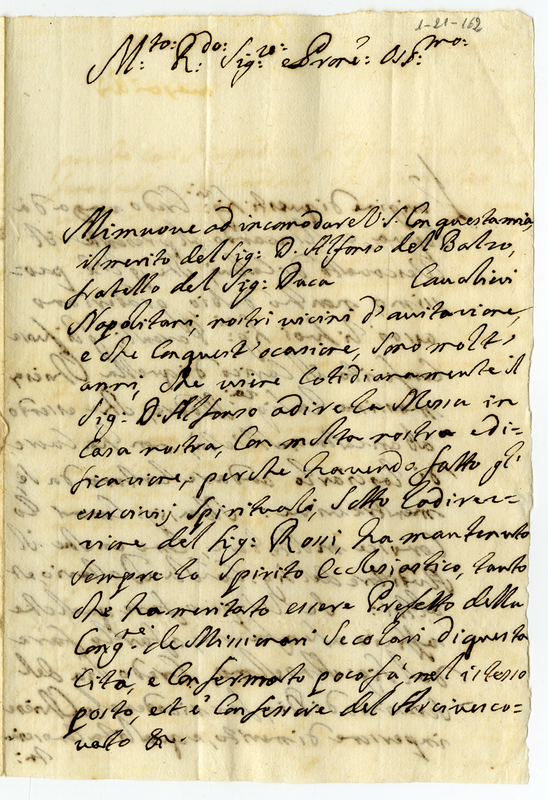 1-21-162
M:to: R:do: Sig:re: e Prone: Oss:mo:
Mi muove ad incomodare V. S. Con questa mia,
il merito del Sig: D. Alfonso del Balzo,
fratello del Sig: Duca Cavalieri
Napolitani, nostri vicini d'avitazione,
e che Con quest'ocasione, sono molt'
anni, che viene Cotidianamente il
Sig: D. Alfonso a dire la Messa in
Casa nostra, Con molta nostra edi-
ficazione, perche havendo fatto gl'
esercizij Spirituali, sotto la direz-
zione del Sig: Rossi, ha mantenuto
sempre lo Spirito Ecclesiastico, tanto
che ha meritato essere Prefetto della
Cong:ne de Missionari Secolari di questa
Città, e Confermato poco fà, nel istesso
posto, et è Confessore del Arcivesco-
vato &.